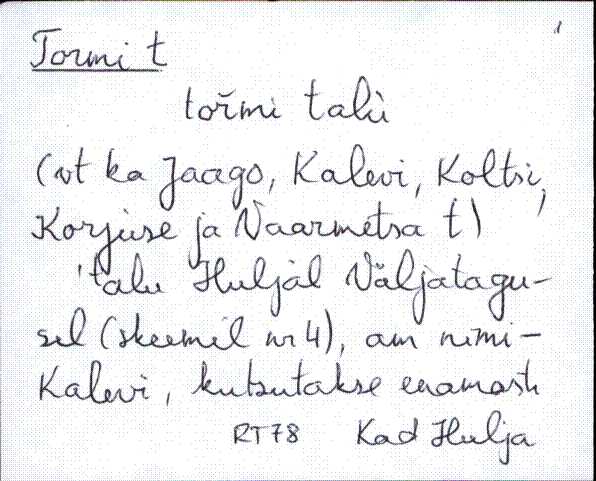 1
Tormi t
tořmi talù
(vt ka Jaago, Kalevi, Koltsi,
Korjuse ja Vaarmetsa t)
'talu Huljal Väljatagu-
sel (skeemil nr 4), am nimi-
Kalevi, kutsutakse enamasti
RT78 Kad Hulja